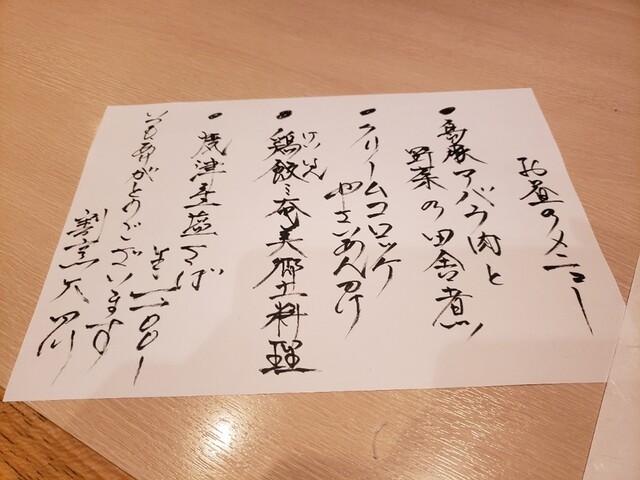 お昼のメニュー
・島豚アバラ肉と
野菜の田舎煮
・クリームコロッケ
やさいあんかけ
けいはん
・鶏飯ミ奄美郷土料理
・焼津産塩さば
いつもありがとうございます
割烹大